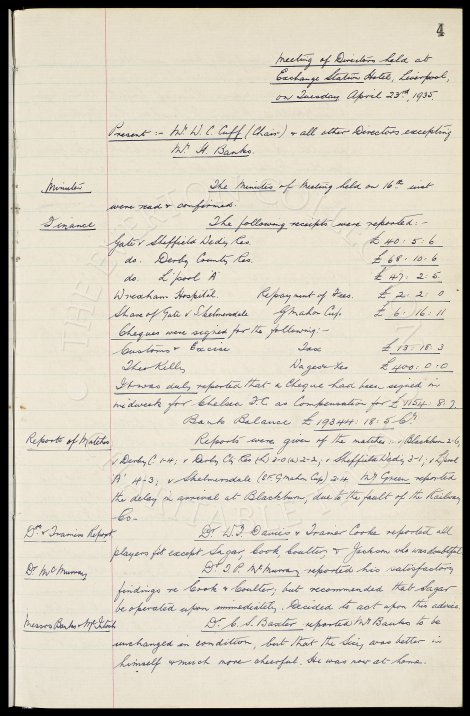 4
Meeting of Directors held at
Exchange Station Hotel, Liverpool,
on Tuesday April 23rd, 1935.
Present :- Mr. W. C. Cuff (Chair) & all other Directors excepting
Mr. H. Banks.
Minutes The Minutes of Meeting held on 16th inst
were read & confirmed.
Finance The following receipts were reported:-
Gate v Sheffield Wedy Res. £ 40 : 5 : 6
do. Derby County Res. £ 68 : 10 : 6
do. L'pool A £ 47 : 2 : 5
Wrexham Hospital. Repayment of Fees. £ 2 : 2 : 0
Share of Gate v Skelmersdale G Mahon Cup. £ 6 : 16 : 11
Cheques were signed for the following:-
Customs & Excise Tax £ 13 : 18 : 3
Theo Kelly Wages & Xes £ 400 : 0 : 0
It was duly reported that a Cheque had been signed in
midweek for Chelsea F C as Compensation for £ 1154 : 8 : 7.
Bank Balance £ 19344 : 18 : 5 Cr
Reports of Matches Reports were given of the matches :- v Blackburn 2-6,
v Derby C. 1-4; v Derby Cty Res (H) 2-0 (a) 2-2; v Sheffield Wedy 3-1; v L'pool
'A' 4-3; v Skelmersdale (G Mahon Cup) 2-4. Mr Green reported
the delay in arrival at Blackburn, due to the fault of the Railway
Co.
Drs & Trainers Report Dr. W. J. Davies & Trainer Cooke reported all
players fit except Sagar, Cook Coulter, & Jackson who was doubtful
Dr McMurray Dr. T. P. McMurray reported his satisfactory
findings re Cook & Coulter; but recommended that Sagar
be operated upon immediately. Decided to act upon this advice.
Messrs Banks & McIntosh Dr. C. S. Baxter reported Mr Banks to be
unchanged in condition, but that the Secy was better in
himself & much more cheerful. He was now at home.